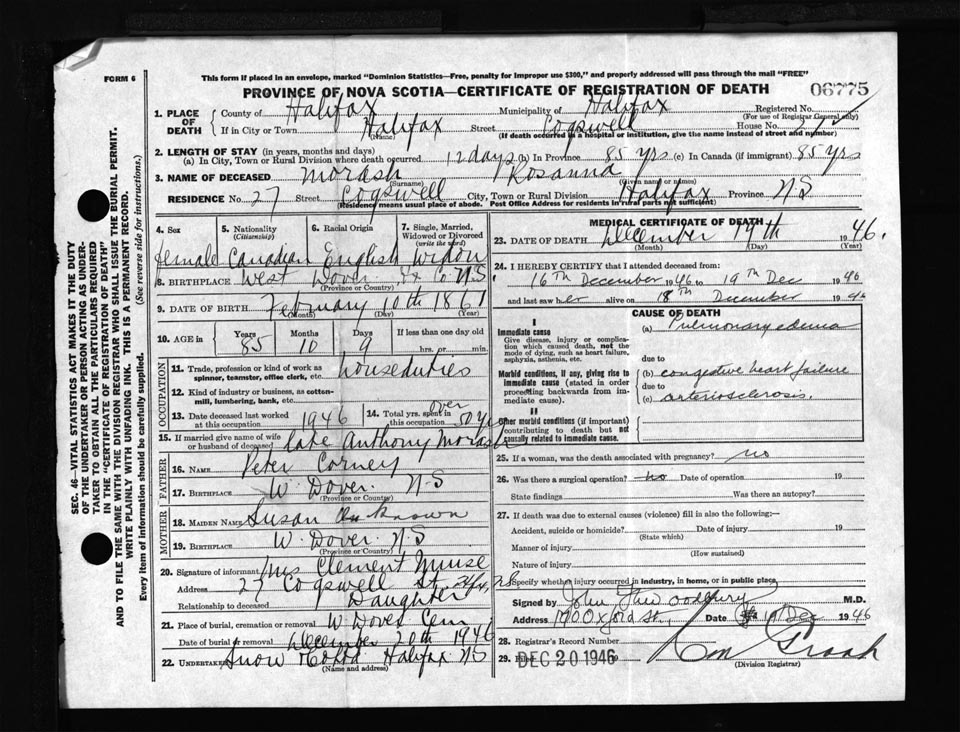 FORM 6
This form if placed in an envelope, marked "Dominion Statistics—Free, penalty for improper use $300," and properly addressed will pass through the mail "FREE"
PROVINCE OF NOVA SCOTIA—CERTIFICATE OF REGISTRATION OF DEATH
06775
1. PLACE OF DEATH
County of Halifax Municipality of Halifax Registered No.
(For use of Registrar General only)
If in City or Town Halifax Street Cogswell House No. 27
(Name) (If death occurred in a hospital or institution, give the name instead of street and number)
2. LENGTH OF STAY (in years, months and days)
(a) In City, Town or Rural Division where death occurred 12 days (b) In Province 85 yrs (c) In Canada (if immigrant) 85 yrs
3. NAME OF DECEASED Morash Rosanna
(Surname) (Given name or names)
RESIDENCE No. 27 Street Cogswell City, Town or Rural Division Halifax Province N S
(Residence means usual place of abode. Post Office Address for residents in rural parts not sufficient)
4. Sex 5. Nationality (Citizenship) 6. Racial Origin 7. Single, Married, Widowed or Divorced (write the word)
female Canadian English Widow
8. BIRTHPLACE West Dover Hx Co N S
(Province or Country)
9. DATE OF BIRTH February 10th 1861
(Month) (Day) (Year)
10. AGE in Years Months Days If less than one day old
85 10 9 hrs. or min.
OCCUPATION
11. Trade, profession or kind of work as spinner, teamster, office clerk, etc. houseduties
12. Kind of industry or business, as cotton-mill, lumbering, bank, etc.
13. Date deceased last worked at this occupation 1946 14. Total yrs. spent in this occupation over 50 yrs
15. If married give name of wife or husband of deceased late Anthony Morash
FATHER
16. NAME Peter Corney
17. BIRTHPLACE W. Dover N-S
(Province or Country)
MOTHER
18. MAIDEN NAME Susan Unknown
19. BIRTHPLACE W. Dover N.S
(Province or Country)
20. Signature of informant Mrs Clement Muise
Address 27 Cogswell St. Hfx, N.S
Relationship to deceased Daughter
21. Place of burial, cremation or removal W Dover Cem
Date of burial or removal December 20th 1946
22. UNDERTAKER Snow & Co Ltd Halifax N S
(Name and address)
MEDICAL CERTIFICATE OF DEATH
23. DATE OF DEATH December 19th 1946.
(Month) (Day) (Year)
24. I HEREBY CERTIFY that I attended deceased from:
16th December 1946 to 19th Dec 1946
and last saw her alive on 18th December 1946
CAUSE OF DEATH
I
Immediate cause
Give disease, injury or complication which caused death, not the mode of dying, such as heart failure, asphyxia, asthenia, etc.
(a) Pulmonary edema
due to
Morbid conditions, if any, giving rise to immediate cause (stated in order proceeding backwards from immediate cause).
(b) congestive heart failure
due to
(c) arteriosclerosis.
II
Other morbid conditions (if important) contributing to death but not causally related to immediate cause.
25. If a woman, was the death associated with pregnancy? no
26. Was there a surgical operation? no Date of operation 19
State findings Was there an autopsy?
27. If death was due to external causes (violence) fill in also the following:—
Accident, suicide or homicide? Date of injury 19
(State which)
Manner of injury
(How sustained)
Nature of injury
Specify whether injury occurred in industry, in home, or in public place,
Signed by John M.D.
Address Date 19 Dec 1946
28. Registrar's Record Number
29. Filed DEC 20 1946 19
(Division Registrar)
SEC. 46—VITAL STATISTICS ACT MAKES IT THE DUTY
OF THE UNDERTAKER OR PERSON ACTING AS UNDERTAKER TO OBTAIN ALL THE PARTICULARS REQUIRED
IN THE "CERTIFICATE OF REGISTRATION OF DEATH"
AND TO FILE THE SAME WITH THE DIVISION REGISTRAR WHO SHALL ISSUE THE BURIAL PERMIT.
WRITE PLAINLY WITH UNFADING INK. THIS IS A PERMANENT RECORD.
Every item of information should be carefully supplied. (See reverse side for instructions.)